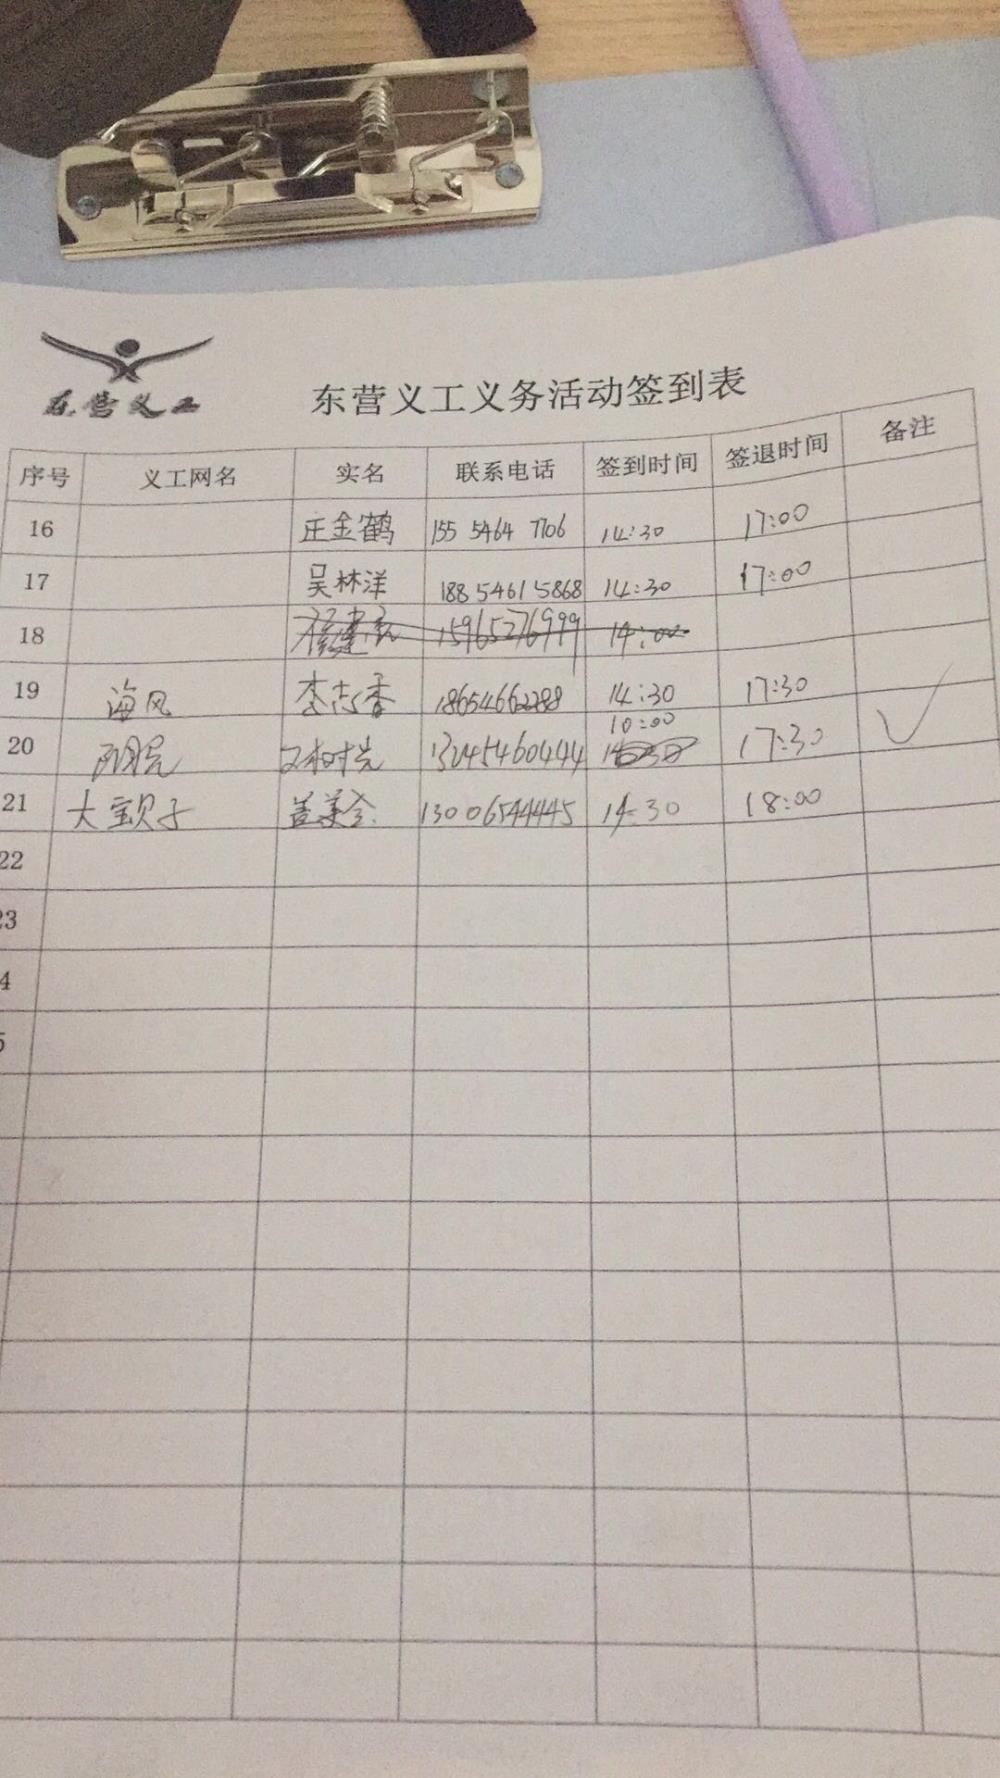 东营义工
东营义工义务活动签到表
序号 义工网名 实名 联系电话 签到时间 签退时间 备注
16 王金鹤 155 5464 7706 14:30 17:00
17 吴林洋 188 5461 5868 14:30 17:00
18 15965276999 14:00
19 海风 李志香 18654662288 14:30 17:30
10:00
20 阳光 13245460444 17:30 √
21 大宝贝子 盖美含 13006544445 14:30 18:00
22
23
4
5